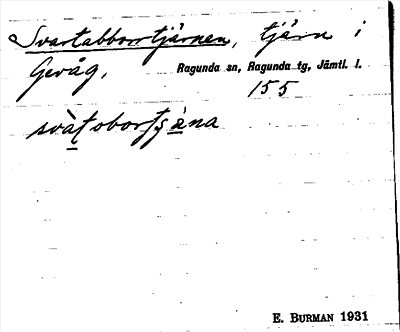 Svartabborrtjärnen, tjärn i
Gevåg, Ragunda sn, Ragunda tg, Jämtl. l.
155
svàt̠obortʂä̀na
E. BURMAN 1931